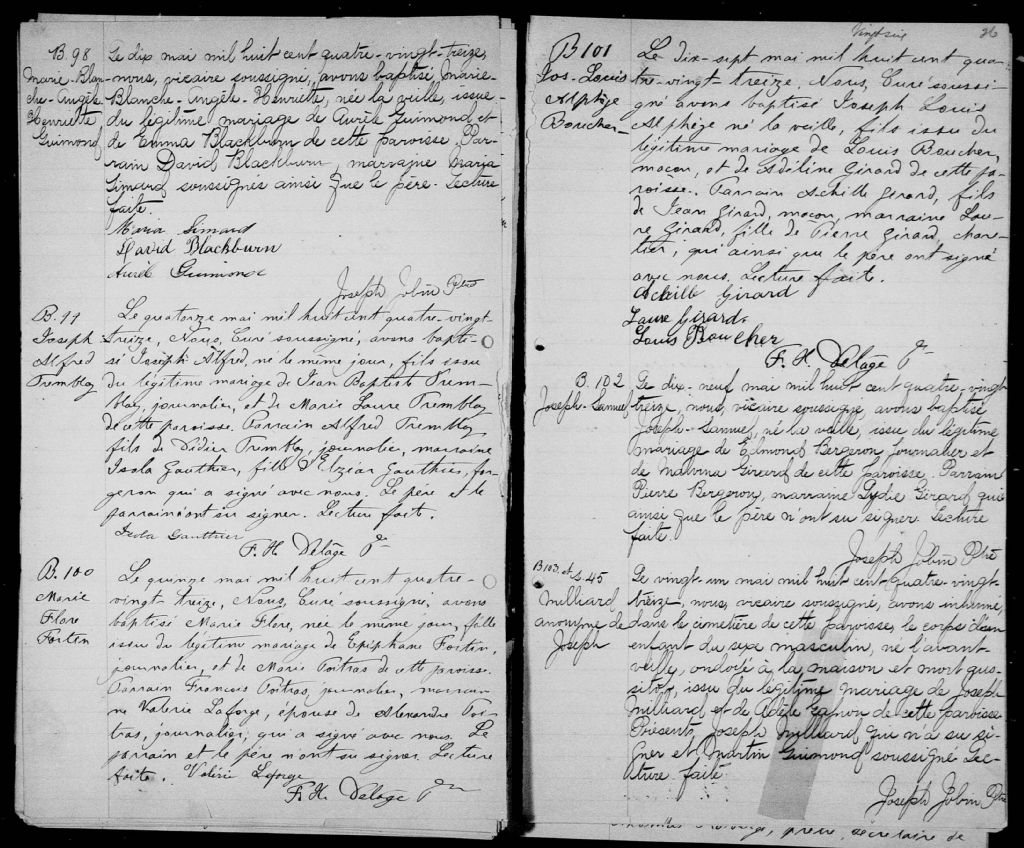 B. 98
Marie-Blan-
che-Angèle
Henriette
Guimond
Le dix mai mil huit cent quatre-vingt-treize,
nous, vicaire soussigné, avons baptisé, Marie-
Blanche-Angèle-Henriette, née la veille, issue
du légitime mariage de Aurèle Guimond et
de Emma Blackburn de cette paroisse. Par-
rain David Blackburn, marraine Maria
Simard soussignés ainsi que le père. Lecture
faite.
Maria Simard
David Blackburn
Aurèle Guimond
Joseph Jobin Ptre
B. 99
Joseph
Alfred
Tremblay
Le quatorze mai mil huit cent quatre-vingt-
treize, Nous, Curé soussigné, avons bapti-
sé Joseph Alfred, né le même jour, fils issu
du légitime mariage de Jean Baptist Trem-
blay, journalier, et de Marie Laure Tremblay
de cette paroisse. Parrain Alfred Tremblay,
fils de Didier Tremblay, journalier, marraine
Isola Gauthier, fille d'Elzéar Gauthier, for-
geron qui a signé avec nous. Le père et le
parrain n'ont su signer. Lecture faite.
Isola Gauthier
F. H. Delâge Ptre
B. 100
Marie
Flore
Fortin
Le quinze mai mil huit cent quatre-
vingt-treize, Nous, Curé soussigné, avons
baptisé Marie Flore, née le même jour, fille
issue du légitime mariage de Epiphane Fortin,
journalier, et de Marie Poitras de cette paroisse.
Parrain François Poitras, journalier, marrai-
ne Valérie Laforge, épouse de Alexandre Poi-
tras, journalier, qui a signé avec nous. Le
parrain et le père n'ont su signer. Lecture
faite. Valérie Laforge
F. H. Delâge Ptre
Vingt six
26
B 101
Jos-Louis
Alphège
Boucher
Le dix-sept mai mil huit cent qua-
tre-vingt treize, Nous, Curé soussi-
gné avons baptisé Joseph Louis
Alphège né la veille, fils issu du
légitime mariage de Louis Boucher,
maçon, et de Adéline Girard de cette pa-
roisse. Parrain Achille Girard, fils
de Jean Girard, maçon, marraine Lau-
re Girard, fille de Pierre Girard, char-
tier, qui ainsi que le père ont signé
avec nous. Lecture faite.
Achille Girard
Laure Girard.
Louis Boucher
F. H. Delâge Ptre
B. 102
Joseph-Samuel
Le dix-neuf mai mil huit cent quatre-vingt-
treize, nous, vicaire soussigné, avons baptisé
Joseph-Samuel, né la veille, issu du légitime
mariage de Edmond Bergeron journalier et
de Malvina Girard de cette paroisse. Parrain
Pierre Bergeron, marraine Lydie Girard qui
ainsi que le père n'ont su signer. Lecture
faite.
Joseph Jobin Ptre
B 103. et S. 45
Milliard
anonyme de
Joseph
Le vingt-un mai mil huit cent quatre-vingt-
treize, nous, vicaire soussigné, avons inhumé,
dans le cimetière de cette paroisse, le corps d'un
enfant du sexe masculin, né l'avant-
veille, ondoyé à la maison et mort aus-
sitôt, issu du légitime mariage de Joseph
Milliard et de Adèle Gagnon de cette paroisse
Présents, Joseph Milliard qui n'a su si-
gner et Martin Guimond soussigné. Lec-
ture faite.
Joseph Jobin Ptre
père, secrétaire de